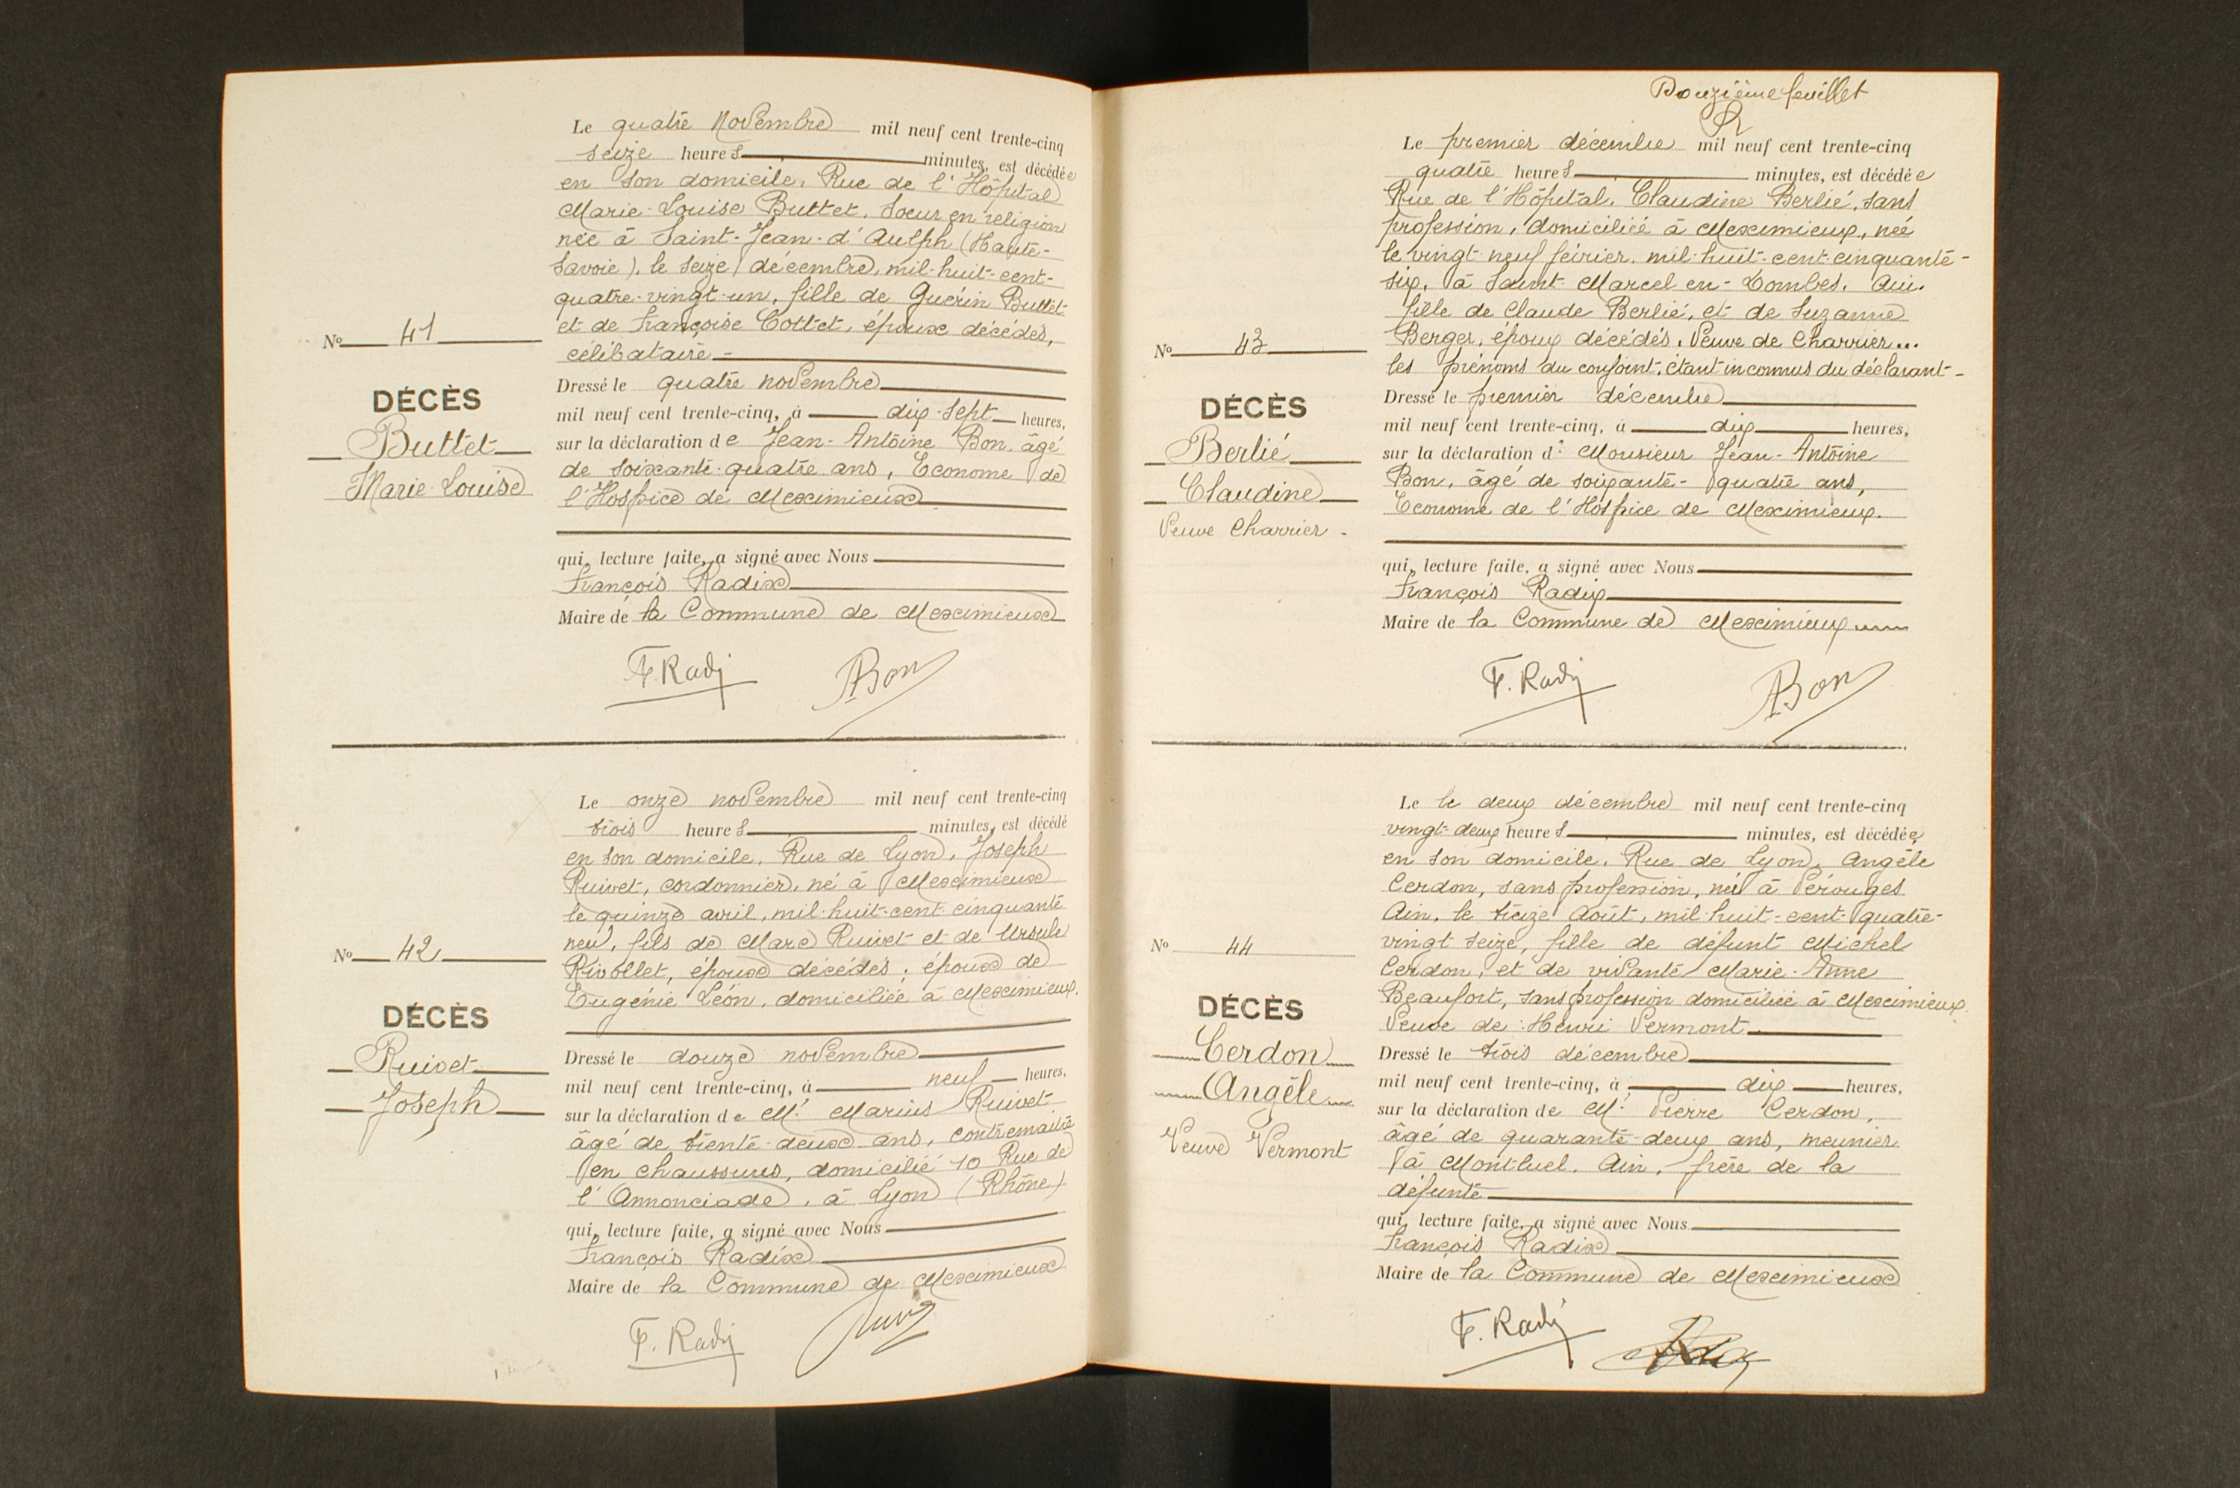 Le quatre Novembre mil neuf cent trente-cinq
seize heures minutes, est décédée
en son domicile, Rue de l'Hôpital
Marie-Louise Buttet, Soeur en religion
née à Saint-Jean-d'Aulph (Haute-
Savoie), le seize décembre, mil-huit-cent-
quatre-vingt-un, fille de Guérin Buttet
et de Françoise Cottet, époux décédés,
célibataire -
No 41
DÉCÈS
Buttet
Marie-Louise
Dressé le quatre novembre
mil neuf cent trente-cinq, à dix-sept heures,
sur la déclaration de Jean-Antoine Bon, âgé
de soixante-quatre ans, Econome de
l'Hospice de Meximieux
qui, lecture faite, a signé avec Nous
François Radix
Maire de la Commune de Meximieux
F. Radix ABon
Le onze novembre mil neuf cent trente-cinq
trois heures minutes, est décédé
en son domicile, Rue de Lyon, Joseph
Ruivet, cordonnier, né à Meximieux
le quinze avril, mil-huit-cent-cinquante
neuf, fils de Marc Ruivet et de Ursule
Rivollet, époux décédés, époux de
Eugénie Léon, domiciliée à Meximieux.
No 42
DÉCÈS
Ruivet
Joseph
Dressé le douze novembre
mil neuf cent trente-cinq, à neuf heures,
sur la déclaration de Mr Marius Ruivet
âgé de trente-deux ans, contremaître
en chaussures, domicilié 10 Rue de
l'Annonciade, à Lyon (Rhône)
qui, lecture faite, a signé avec Nous
François Radix
Maire de la Commune de Meximieux
F. Radix
Douzième feuillet
R
Le premier décembre mil neuf cent trente-cinq
quatre heures minutes, est décédée
Rue de l'Hôpital, Claudine Berlié, sans
profession, domiciliée à Meximieux, née
le vingt-neuf février, mil-huit-cent-cinquante-
six, à Saint-Marcel-en-Dombes, Ain.
fille de Claude Berlié, et de Suzanne
Berger, époux décédés, Veuve de Charrier...
les prénoms du conjoint, étant inconnus du déclarant -
No 43
DÉCÈS
Berlié
Claudine
Veuve Charrier -
Dressé le premier décembre
mil neuf cent trente-cinq, à dix heures,
sur la déclaration de Monsieur Jean-Antoine
Bon, âgé de soixante-quatre ans,
Econome de l'Hospice de Meximieux.
qui, lecture faite, a signé avec Nous
François Radix
Maire de la Commune de Meximieux
F. Radix ABon
Le le deux décembre mil neuf cent trente-cinq
vingt-deux heures minutes, est décédée
en son domicile, Rue de Lyon, Angèle
Cerdon, sans profession, née à Pérouges
Ain, le treize Août, mil-huit-cent-quatre-
vingt seize, fille de défunt Michel
Cerdon, et de vivante Marie-Anne
Beaufort, sans profession domiciliée à Meximieux.
Veuve de Henri Vermont
No 44
DÉCÈS
Cerdon
Angèle
Veuve Vermont
Dressé le trois décembre
mil neuf cent trente-cinq, à dix heures,
sur la déclaration de Mr Pierre Cerdon,
âgé de quarante-deux ans, meunier
à Montluel, Ain, frère de la
défunte
qui, lecture faite, a signé avec Nous
François Radix
Maire de la Commune de Meximieux
F. Radix